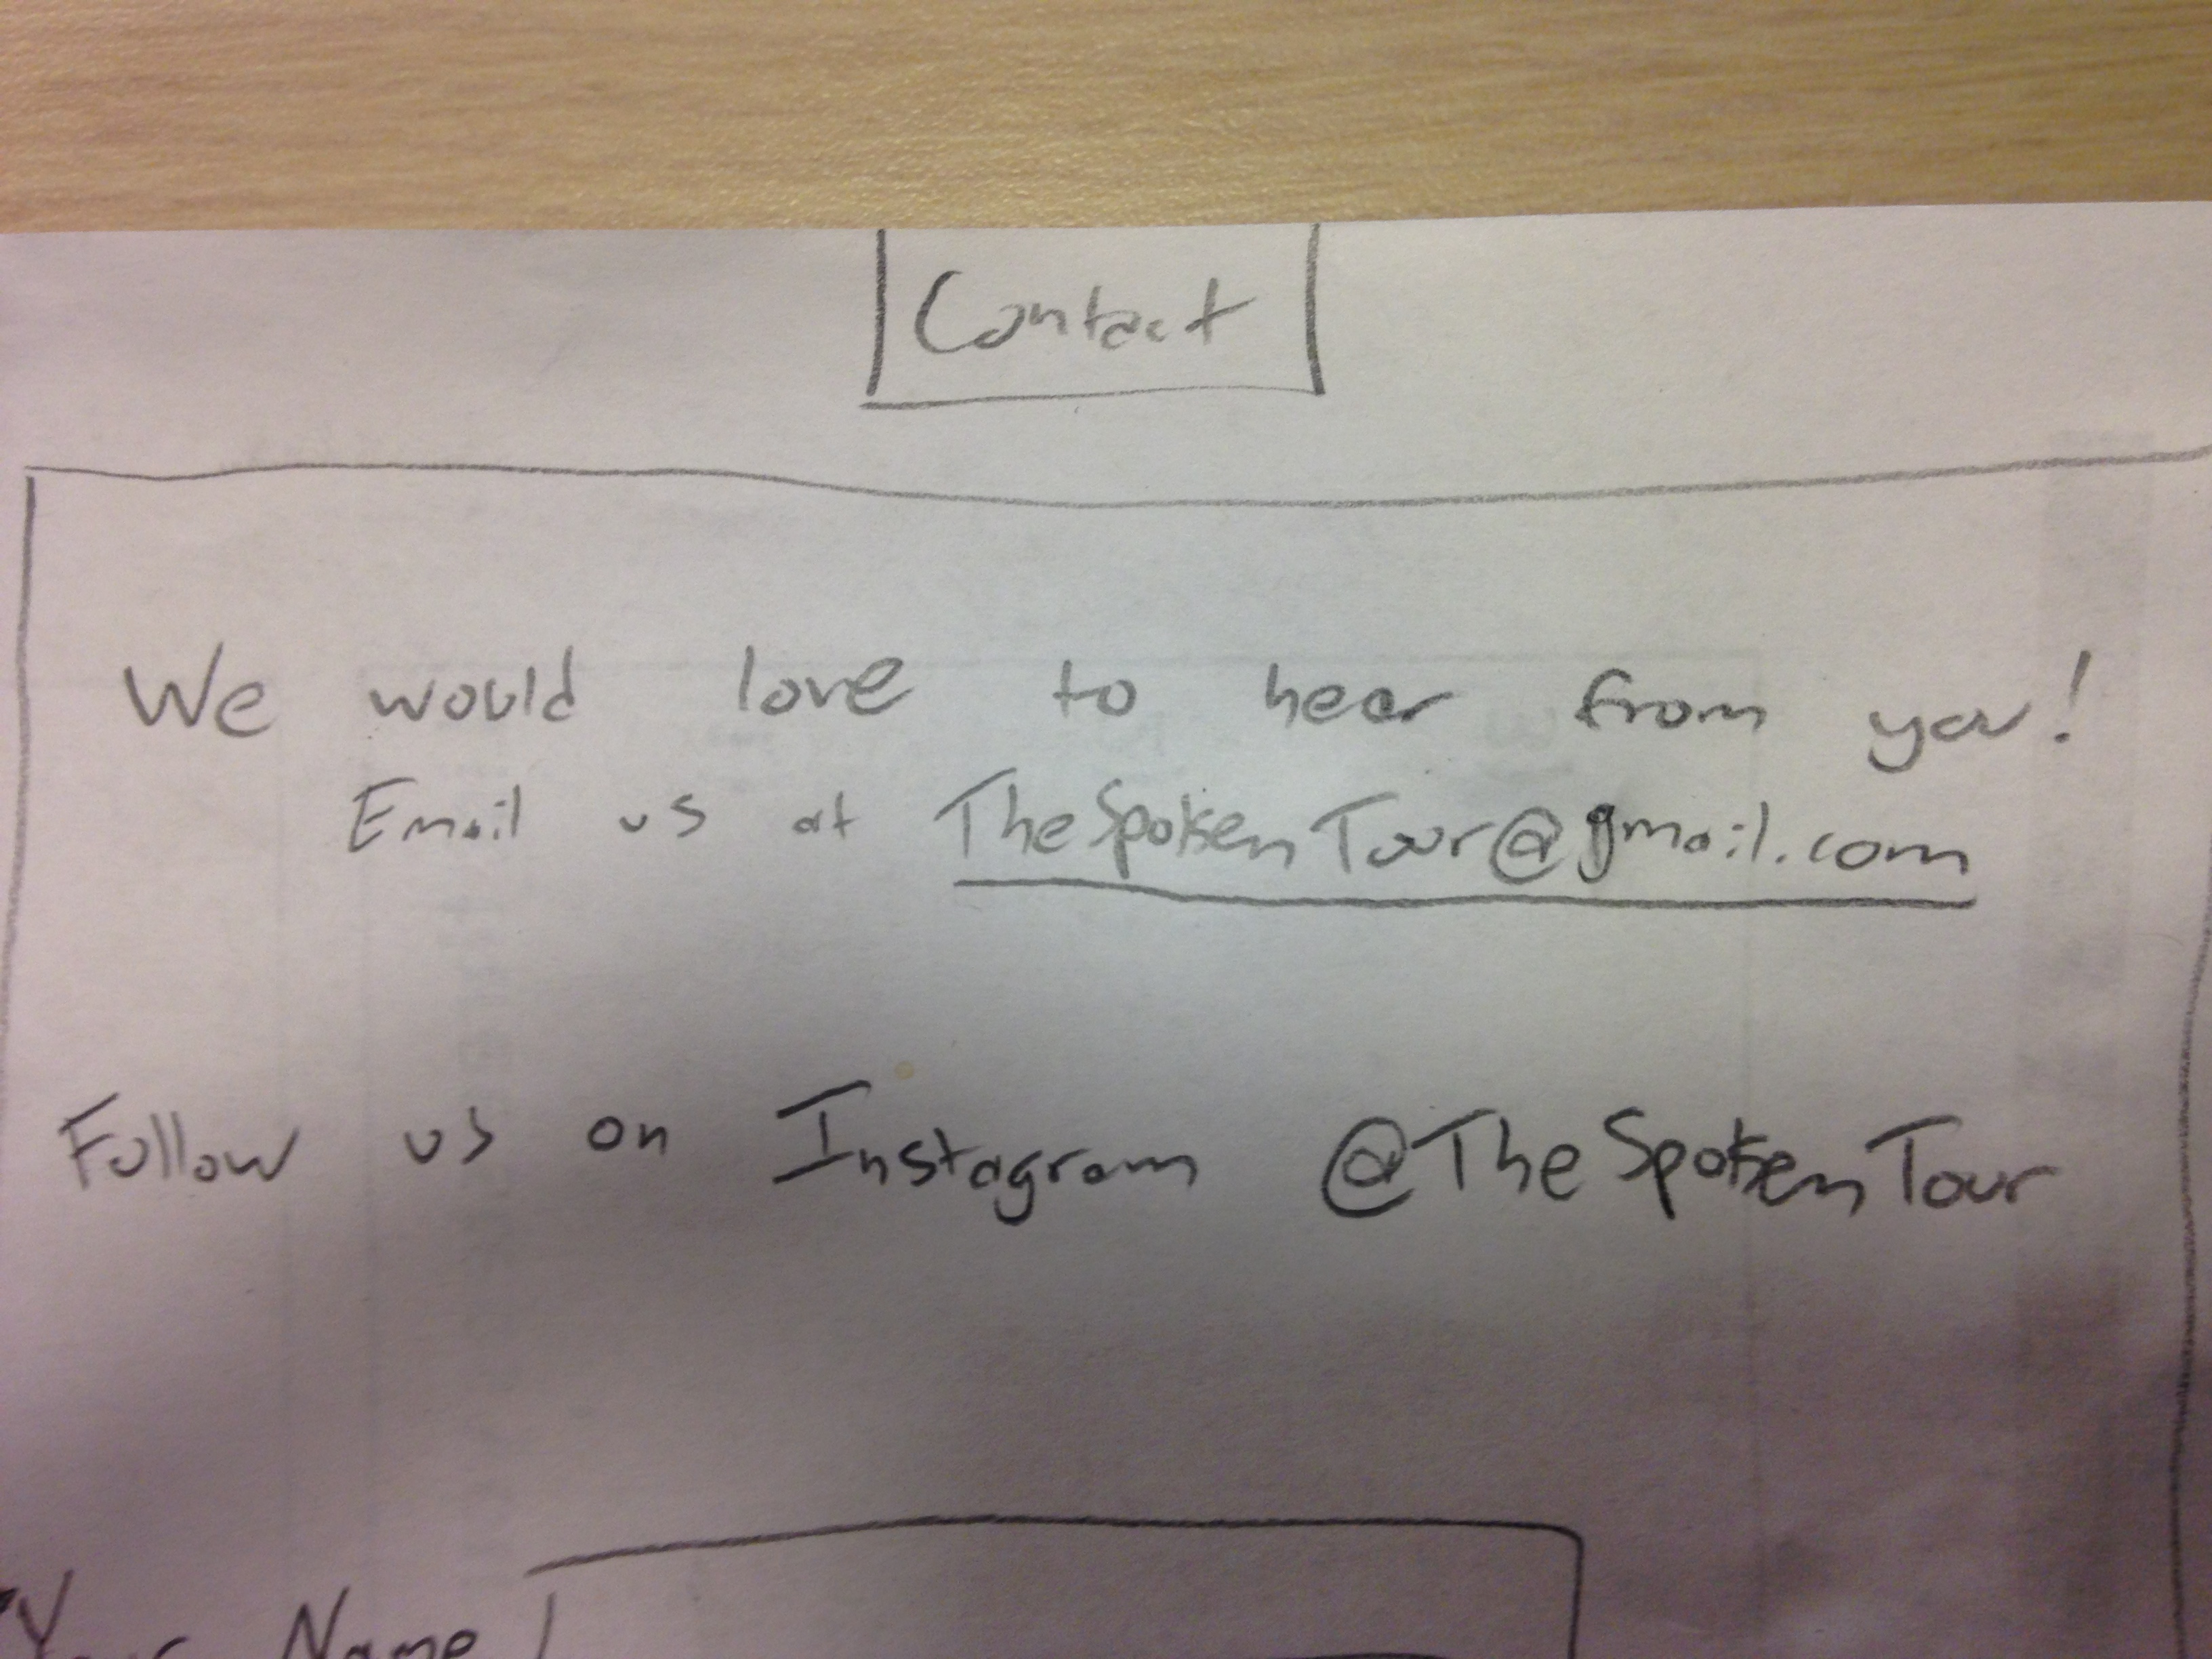 Contact
We would love to hear from you!
Email us at TheSpokenTour@gmail.com
Follow us on Instagram @TheSpokenTour
Name